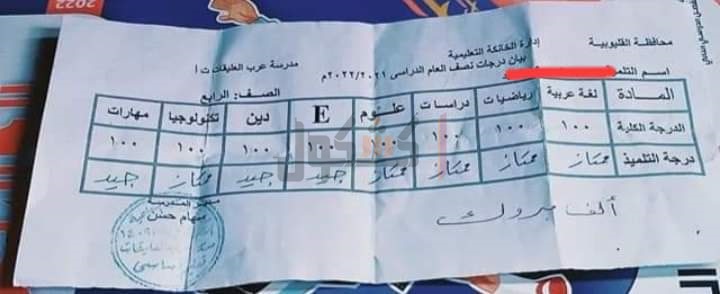 محافظة القليوبية
إدارة الخانكة التعليمية
مدرسة عرب العليقات ت أ
بيان درجات نصف العام الدراسى ٢٠٢٢/٢٠٢١م
اسم التلميذ
الصف: الرابع
المادة لغة عربية رياضيات دراسات علوم E دين تكنولوجيا مهارات
الدرجة الكلية ١٠٠ ١٠٠ ١٠٠ ١٠٠ ١٠٠ ١٠٠ ١٠٠ ١٠٠
درجة التلميذ ممتاز ممتاز ممتاز ممتاز جيد جيد ممتاز جيد
ألف مبروك
مدير المدرسة
سهام حسن
كشكول
2022